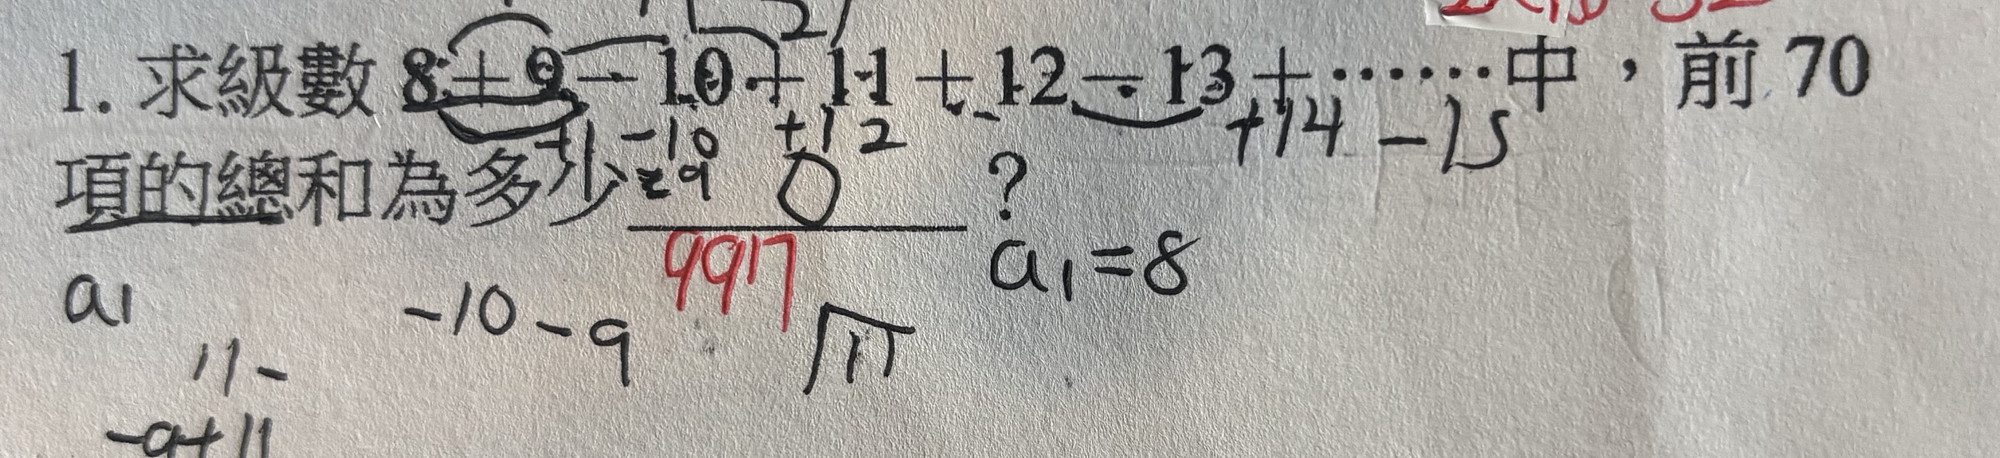 1. 求級數 8 + 9 − 10 + 11 + 12 − 13 + ⋯⋯中，前 70
+1 −10 +12 +14 −15
項的總和為多少 =9 0 ?
997
a₁ a₁=8
−10 −9 √11
11−
−9+11